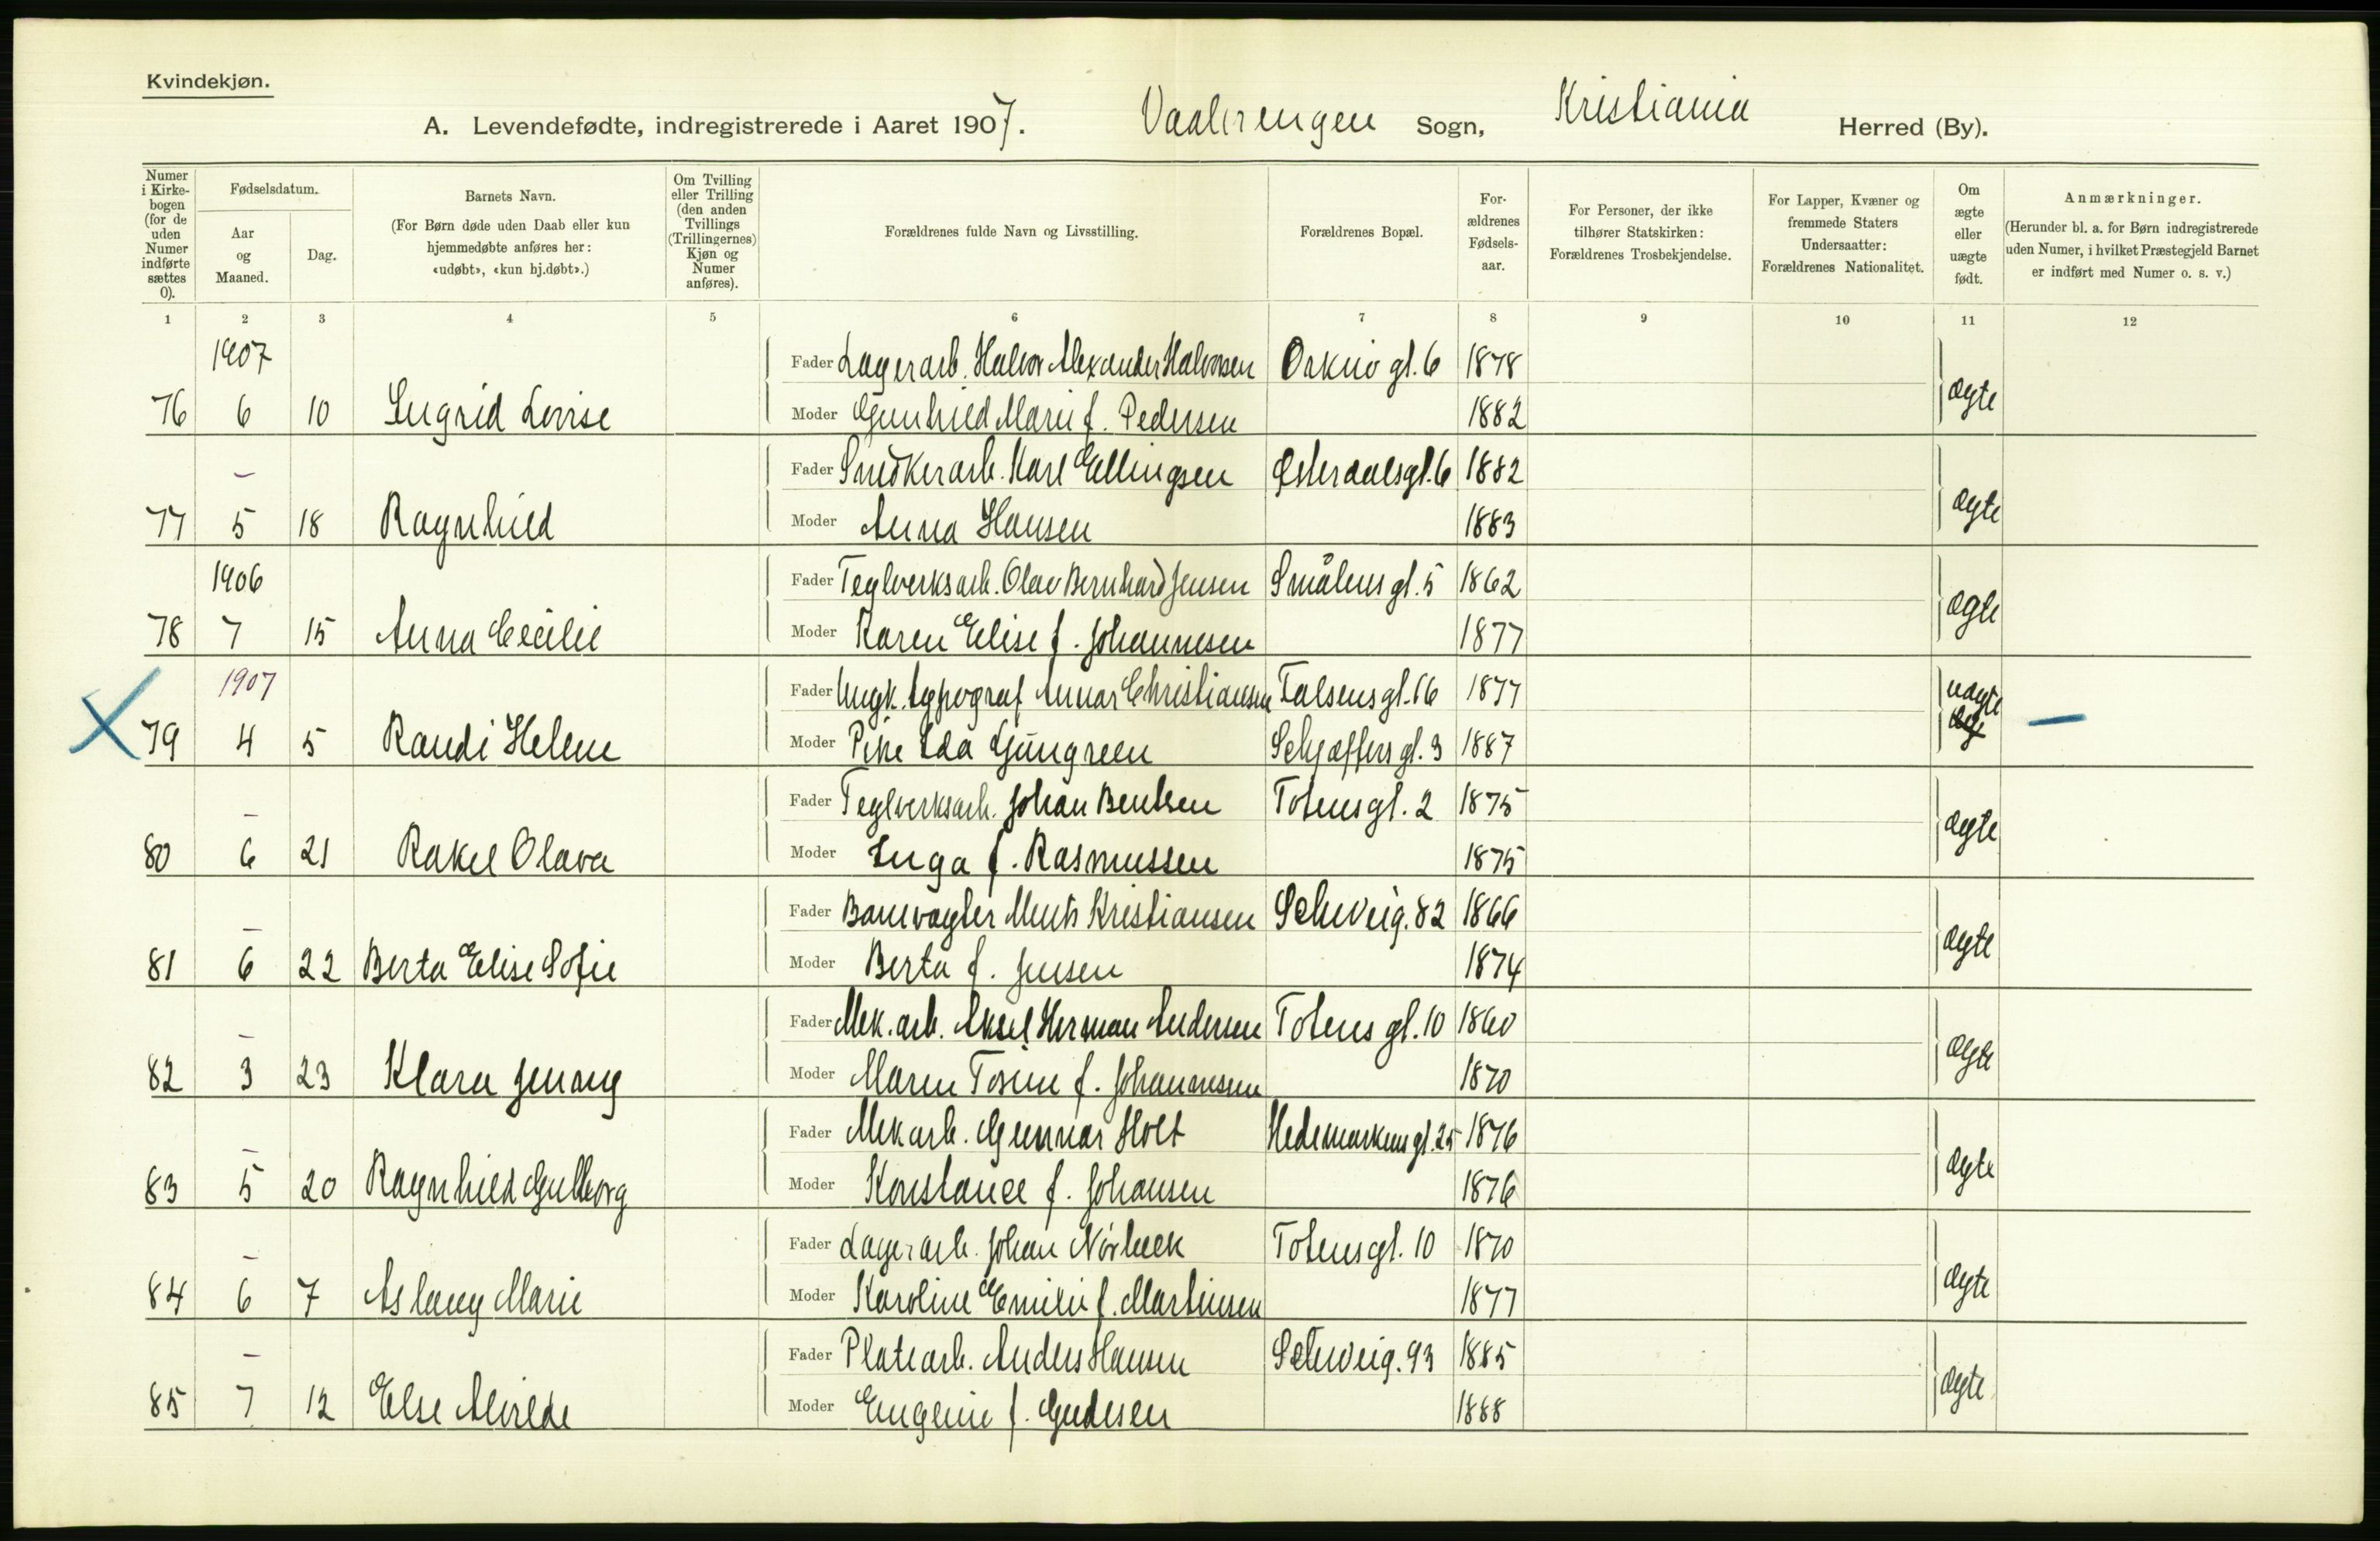 Kvindekjøn.
A. Levendefødte, indregistrerede i Aaret 1907. Vaalerengen Sogn, Kristiania Herred (By).
Numer i Kirkebogen (for de uden Numer indførte sættes 0).
Fødselsdatum.
Aar og Maaned.
Dag.
Barnets Navn.
(For Børn døde uden Daab eller kun hjemmedøbte anføres her: «udøbt», «kun hj.døbt».)
Om Tvilling eller Trilling (den anden Tvillings (Trillingernes) Kjøn og Numer anføres).
Forældrenes fulde Navn og Livsstilling.
Forældrenes Bopæl.
Forældrenes Fødselsaar.
For Personer, der ikke tilhører Statskirken: Forældrenes Trosbekjendelse.
For Lapper, Kvæner og fremmede Staters Undersaatter: Forældrenes Nationalitet.
Om ægte eller uægte født.
Anmærkninger.
(Herunder bl. a. for Børn indregistrerede uden Numer, i hvilket Præstegjeld Barnet er indført med Numer o. s. v.)
1 2 3 4 5 6 7 8 9 10 11 12
1907 Fader Lagerarb. Halvor Alexander Halvorsen Orknø gt. 6 1878
76 6 10 Ingrid Lovise Moder Gunhild Marie f. Pedersen 1882 ægte
– Fader Snedkerarb. Karl Ellingsen Østerdalsgt. 6 1882
77 5 18 Ragnhild Moder Anna Hansen 1883 ægte
1906 Fader Teglverksarb. Olav Bernhard Jensen Smålens gt. 5 1862
78 7 15 Anna Cecilie Moder Karen Elise f. Johannesen 1877 ægte
1907 Fader Ungk. typograf Annar Christiansen Falsens gt. 16 1877 uægte
79 4 5 Randi Helene Moder Pike Ida Ljungreen Schjøffers gt. 3 1887 –
– Fader Teglverksarb. Johan Bentsen Totens gt. 2 1875
80 6 21 Rakel Olava Moder Inga f. Rasmussen 1875 ægte
– Fader Banevogter Ments Kristiansen Schweig. 82 1866
81 6 22 Berta Elise Sofie Moder Berta f. Jensen 1874 ægte
– Fader Mek. arb. Aksel Herman Andersen Totens gt. 10 1860
82 3 23 Klara Jenang Moder Maren Tosine f. Johannesen 1870 ægte
– Fader Mek arb. Gunnar Holt Hedemarkens gt. 25 1876
83 5 20 Ragnhild Gulborg Moder Konstance f. Johansen 1876 ægte
– Fader Lagerarb. Johan Nørbeck Totens gt. 10 1870
84 6 7 Aslaug Marie Moder Karoline Emilie f. Martinsen 1877 ægte
– Fader Platearb. Anders Hansen Schweig. 93 1885
85 7 12 Else Alvilde Moder Eugenie f. Gudesen 1888 ægte